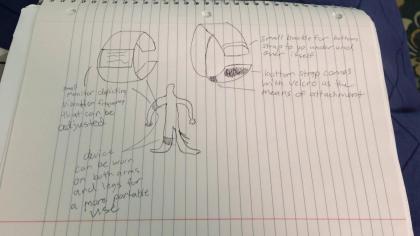 Small buckle for bottom
strap to go under and
over itself
bottom strap comes
with velcro as the
means of attachment
small
monitor depicting
vibration frequency
that can be
adjusted
device
can be worn
on both arms
and legs for
a more portable
use